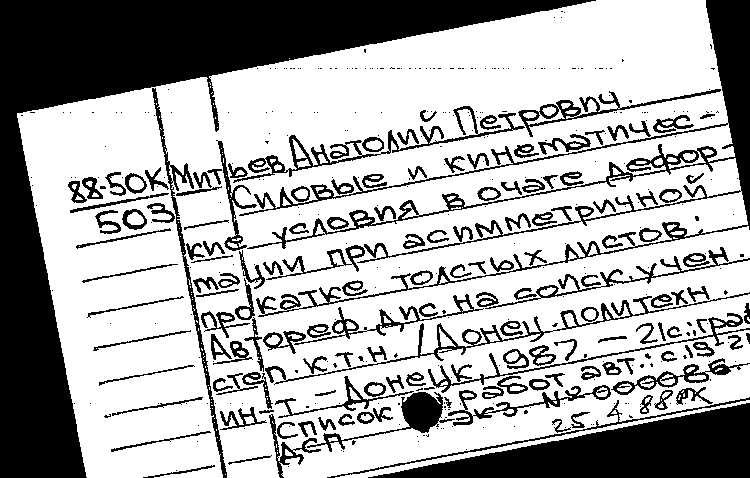 Митьев, Анатолий Петрович.
88-50К
503
Силовые и кинематичес-
кие условия в очаге дефор-
мации при асимметричной
прокатке толстых листов:
Автореф. дис. на соиск. учен.
степ. к.т.н. / Донец. политехн.
ин-т. - Донецк, 1987. - 21с.: граф
Список работ авт.: с. 19-21
ДСП. экз. № 000086.
25.4.88